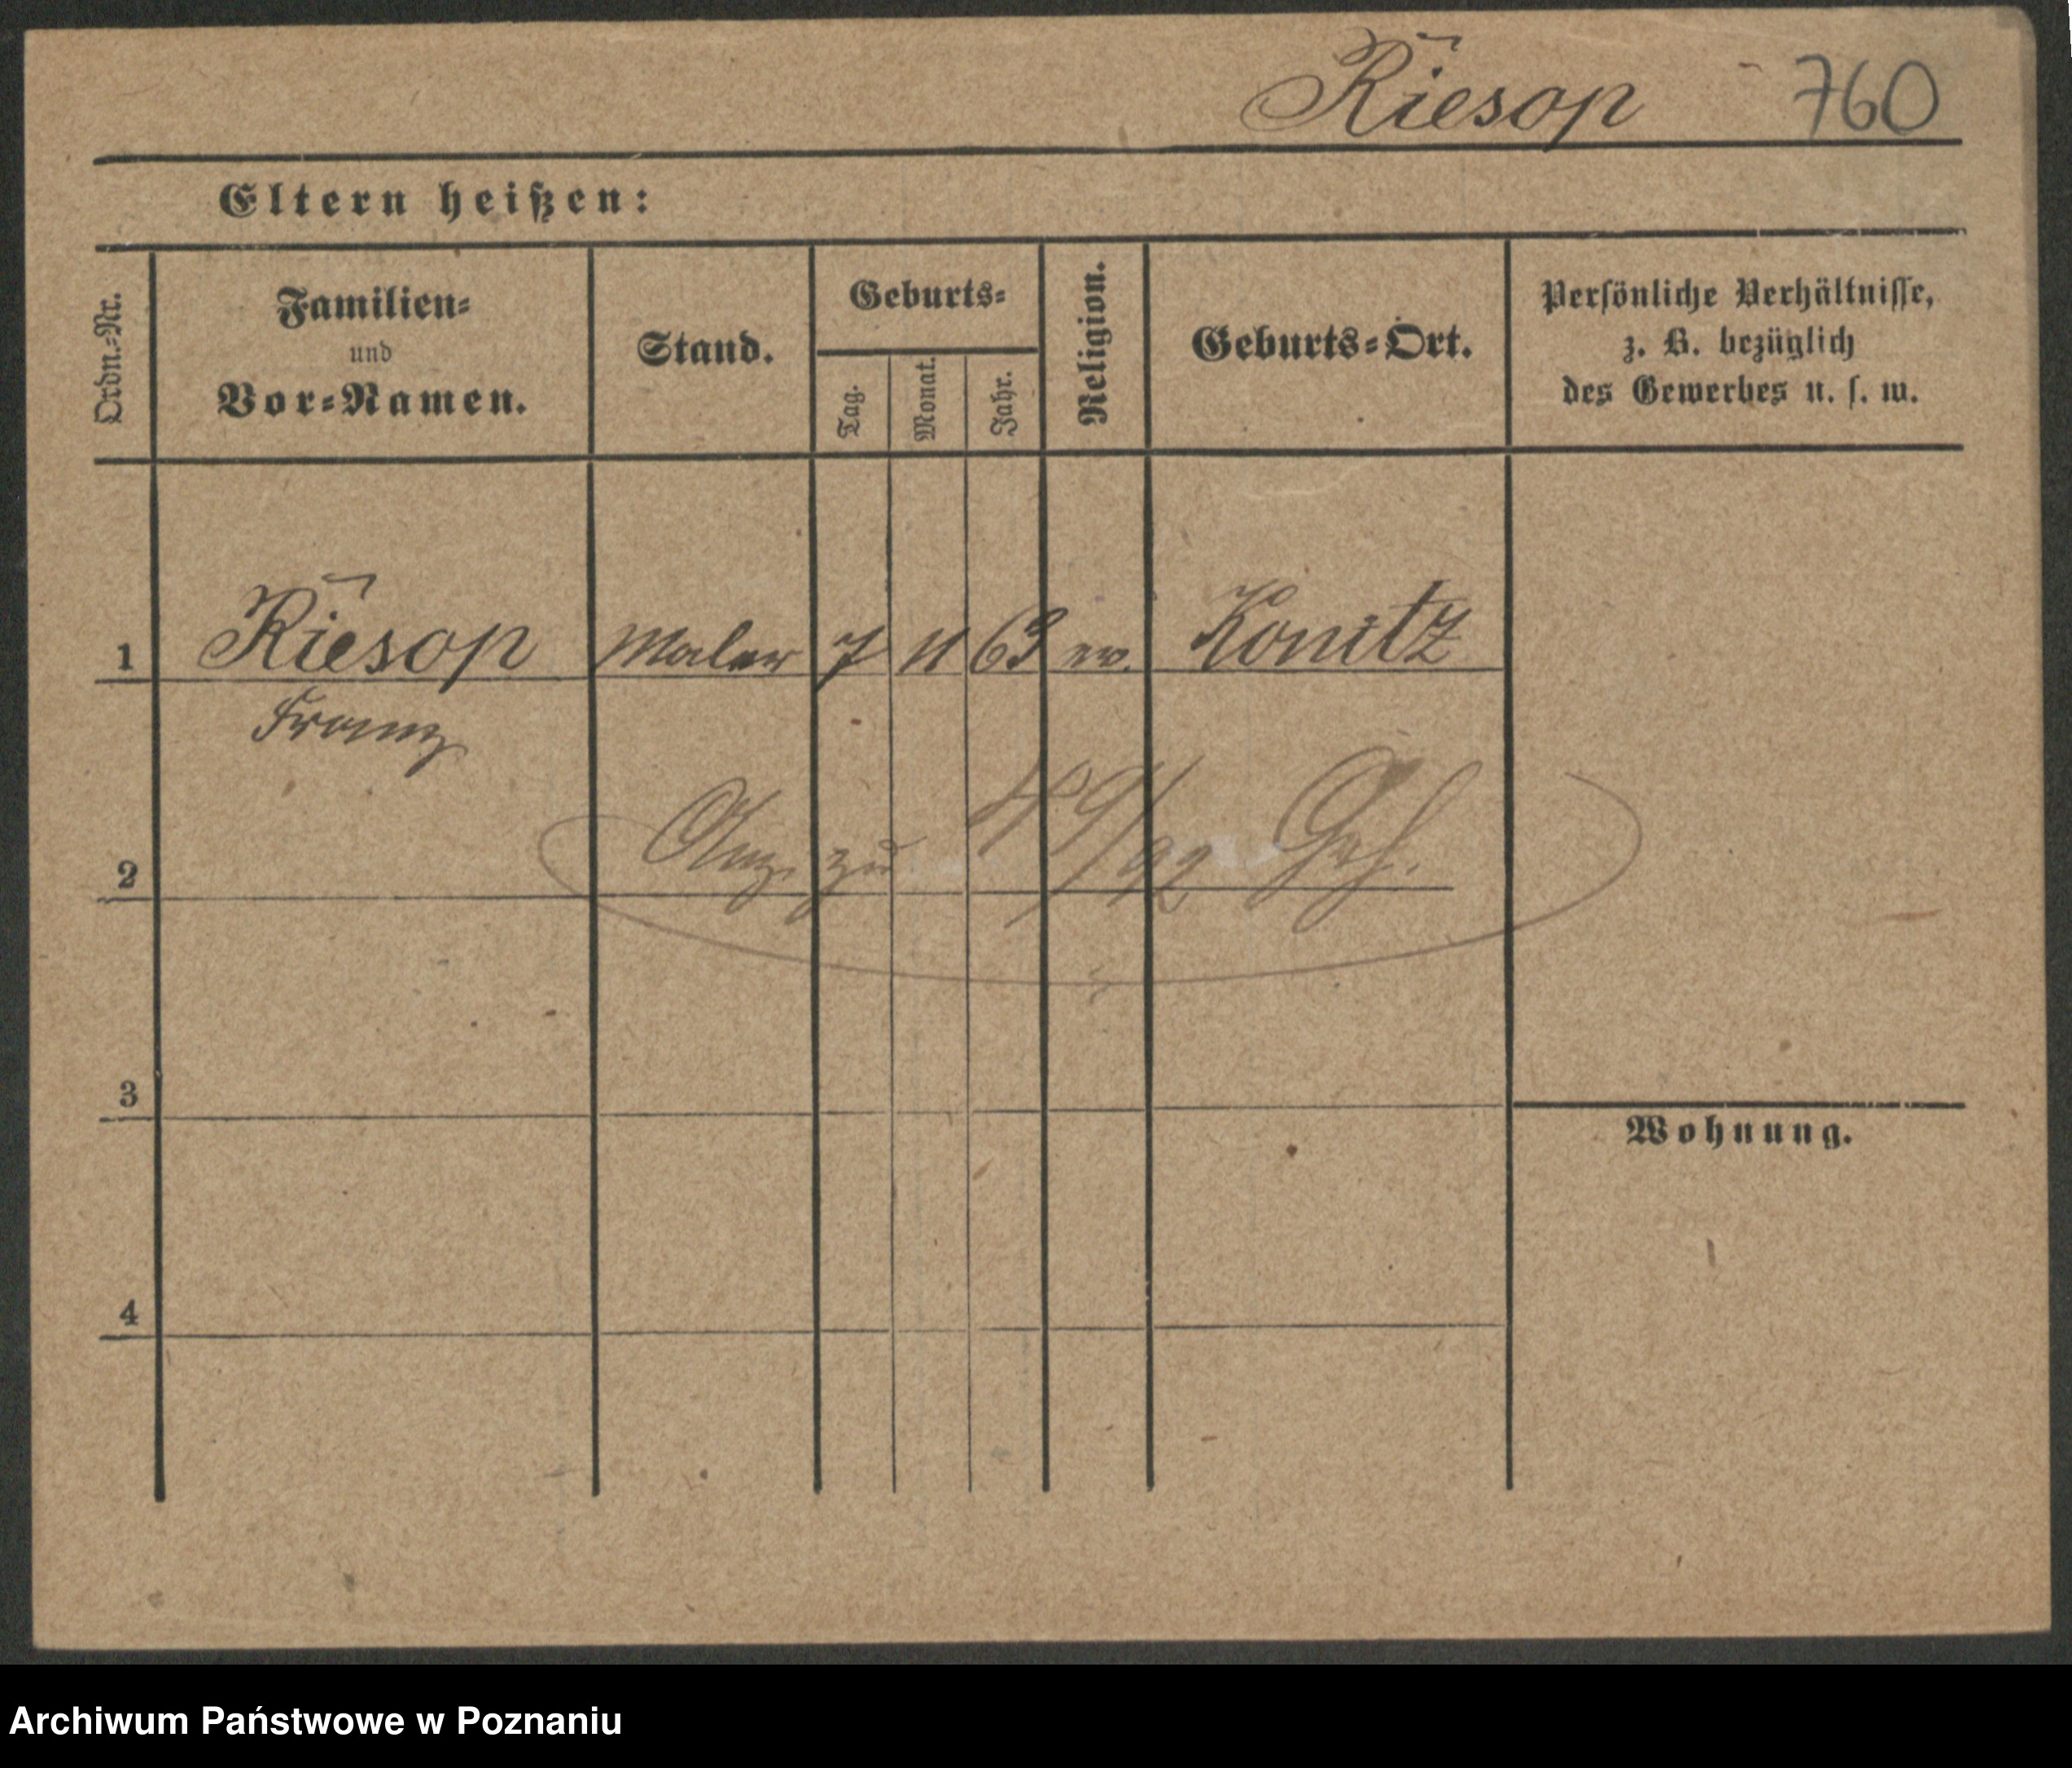 Riesop 760
Eltern heißen:
Ordn.-Nr.
Familien-
und
Vor-Namen.
Stand.
Geburts-
Tag.
Monat.
Jahr.
Religion.
Geburts-Ort.
Persönliche Verhältnisse,
z. B. bezüglich
des Gewerbes u. s. w.
1 Riesop Maler 7 11 63 ev. Konitz
Franz
2 zu /92
3
Wohnung.
4
Archiwum Państwowe w Poznaniu